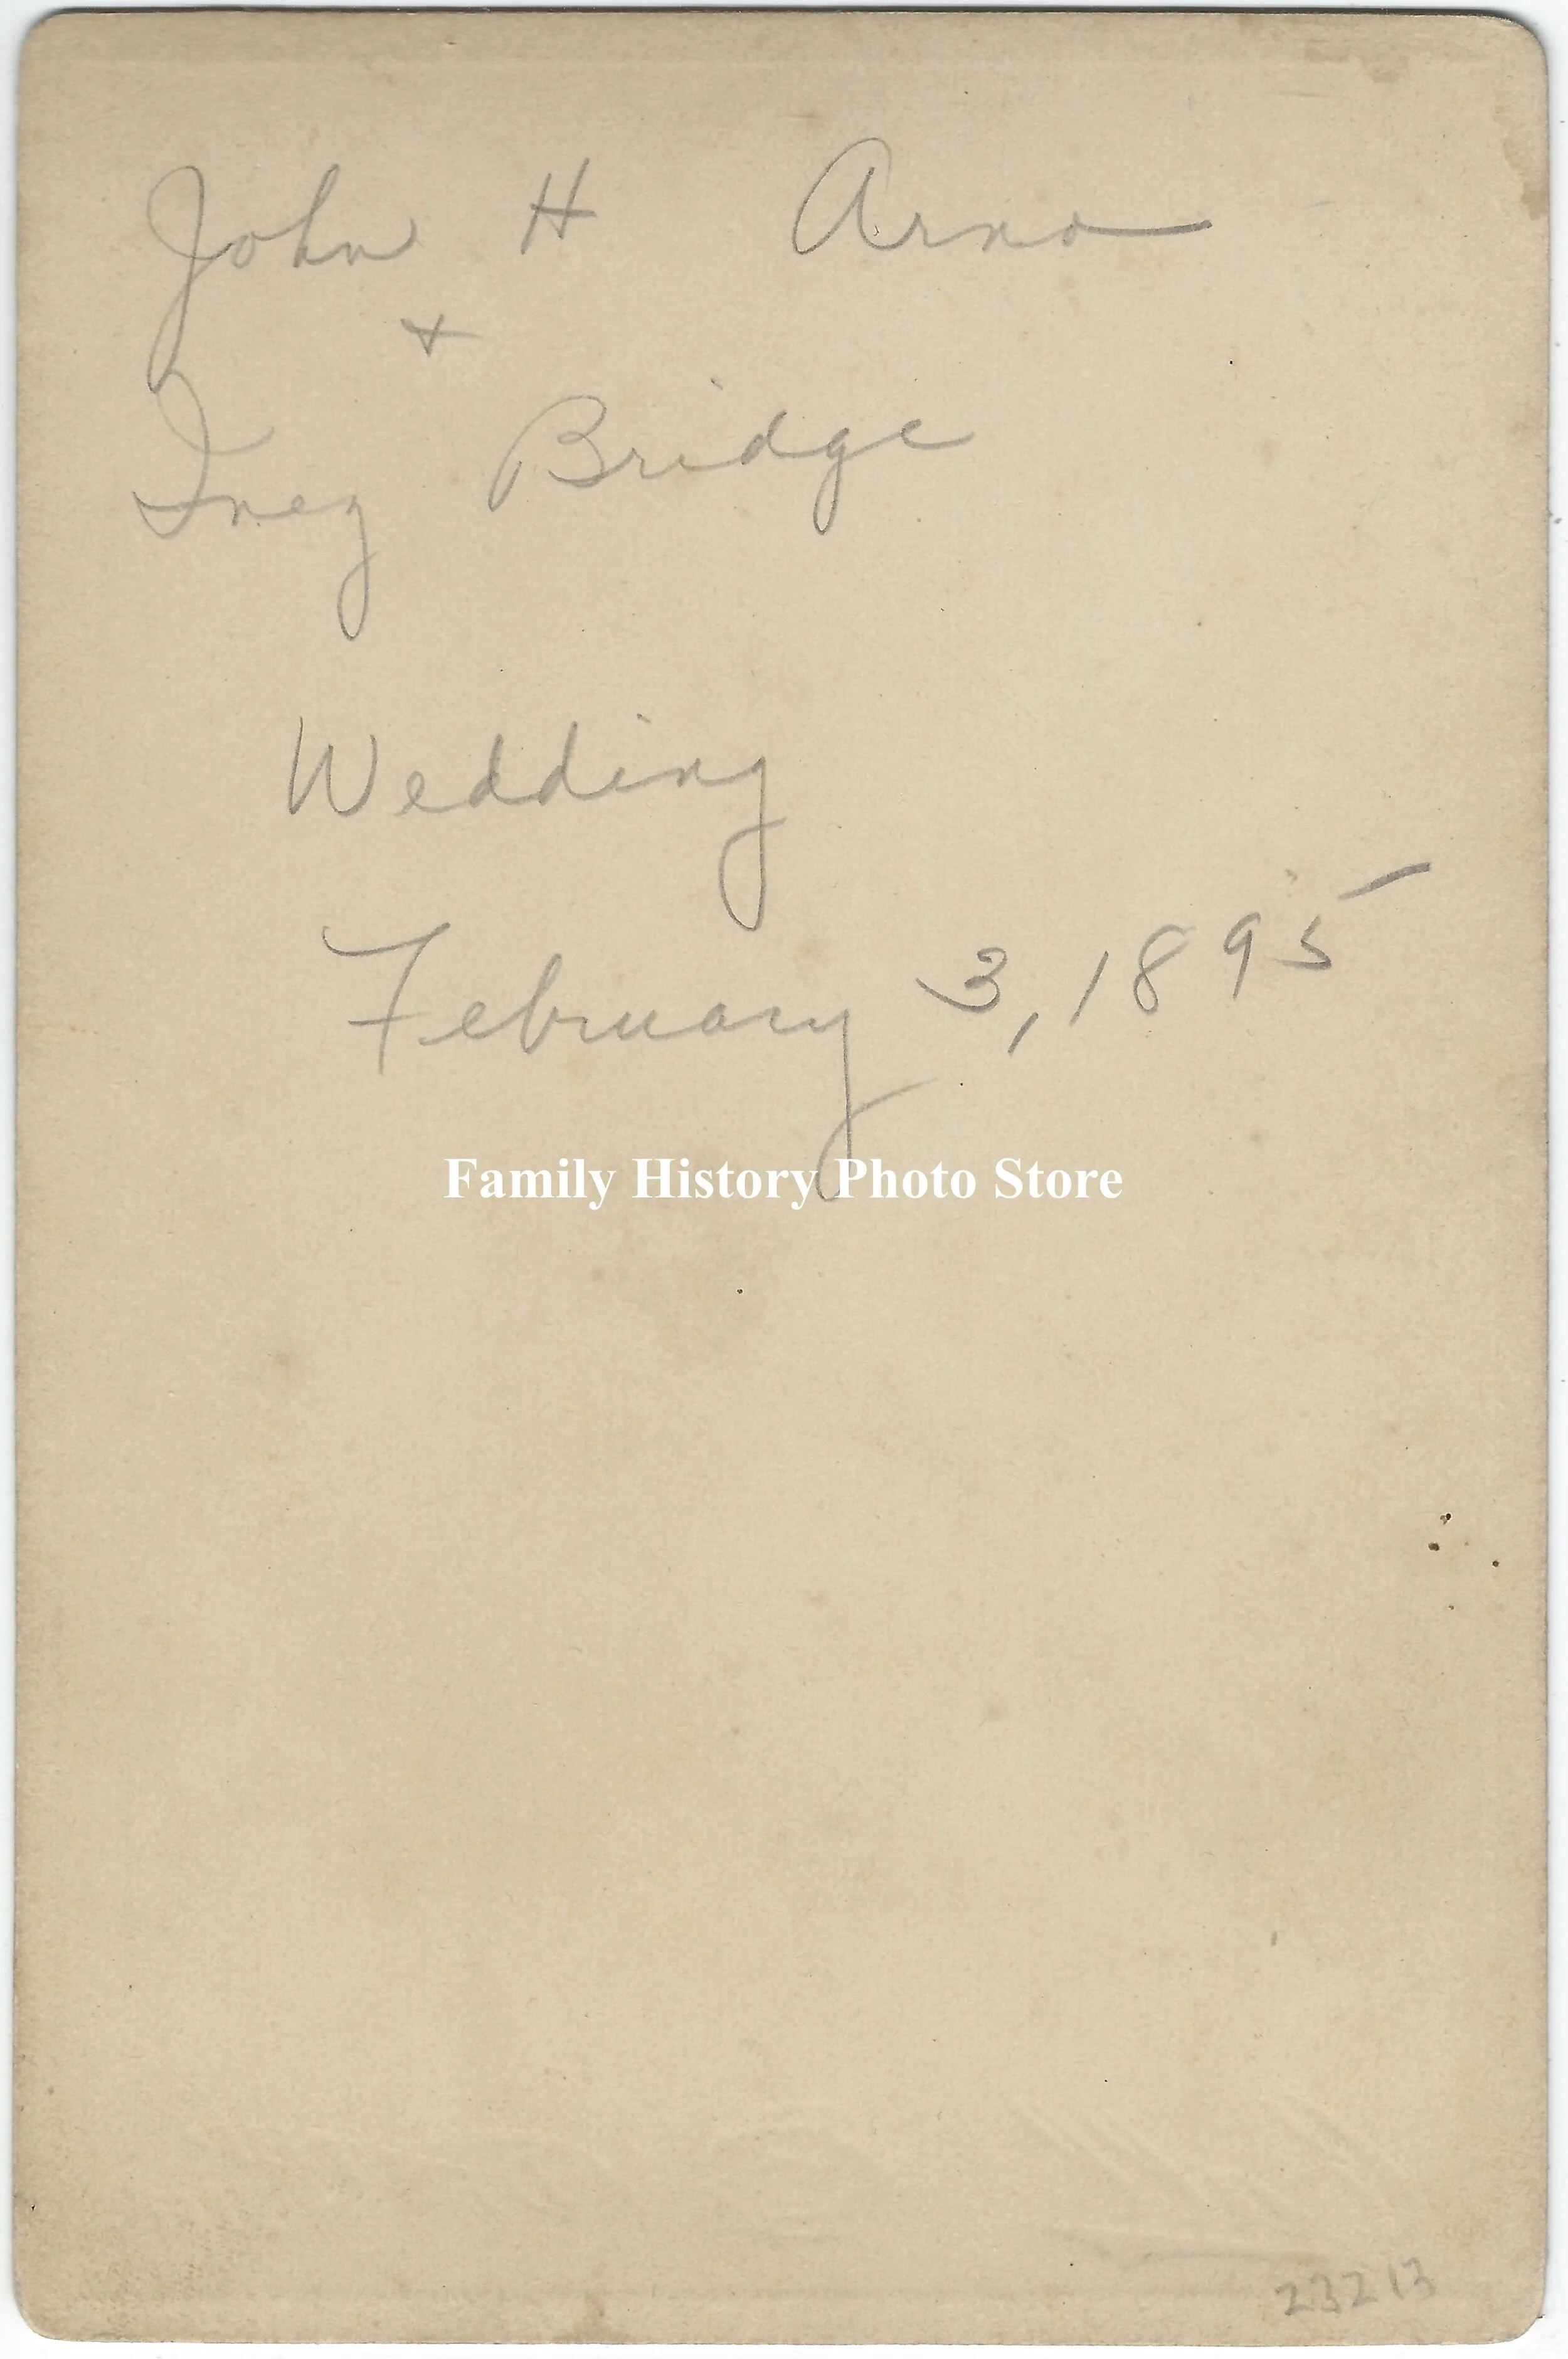 John H Arno
+
Inez Bridge
Wedding
February 3, 1895
Family History Photo Store
23213